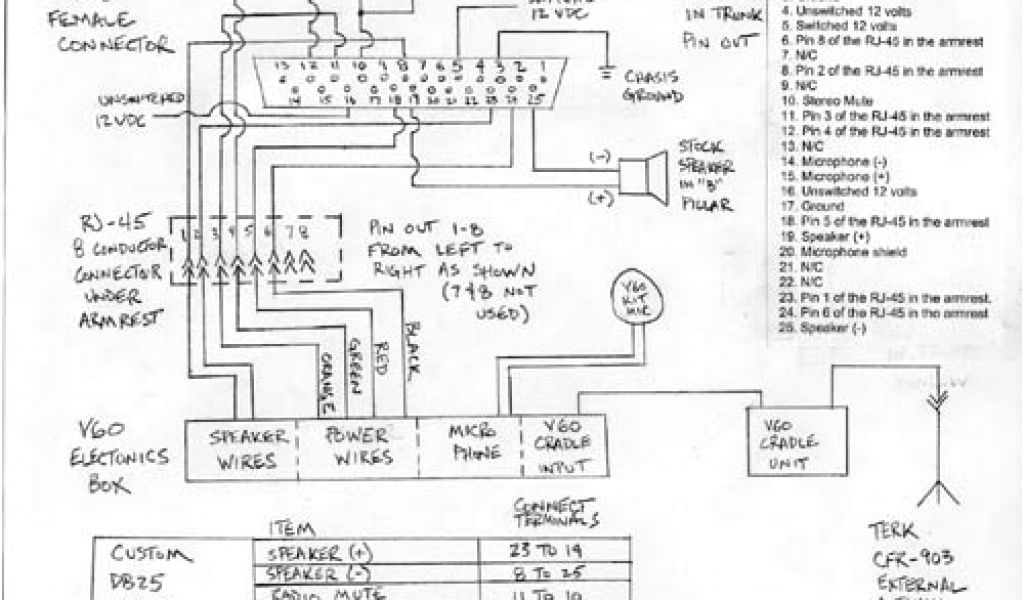 FEMALE
CONNECTOR
12 VDC
IN TRUNK
PIN OUT
4. Unswitched 12 volts
5. Switched 12 volts
6. Pin 8 of the RJ-45 in the armrest
7. N/C
8. Pin 2 of the RJ-45 in the armrest
9. N/C
10. Stereo Mute
11. Pin 3 of the RJ-45 in the armrest
12. Pin 4 of the RJ-45 in the armrest
13. N/C
14. Microphone (-)
15. Microphone (+)
16. Unswitched 12 volts
17. Ground
18. Pin 5 of the RJ-45 in the armrest
19. Speaker (+)
20. Microphone shield
21. N/C
22. N/C
23. Pin 1 of the RJ-45 in the armrest.
24. Pin 6 of the RJ-45 in the armrest
25. Speaker (-)
13 12 11 10 9 8 7 6 5 4 3 2 1
14 15 16 17 18 19 20 21 22 23 24 25
CHASIS
GROUND
UNSWITCHED
12 VDC
(-)
(+)
STOCK
SPEAKER
IN "B"
PILLAR
RJ-45
8 CONDUCTOR
CONNECTOR
UNDER
ARMREST
1 2 3 4 5 6 7 8
PIN OUT 1-8
FROM LEFT TO
RIGHT AS SHOWN
(7&8 NOT
USED)
V60
KIT
MIC
ORANGE
GREEN
RED
BLACK
V60
ELECTONICS
BOX
SPEAKER
WIRES
POWER
WIRES
MICRO
PHONE
V60
CRADLE
INPUT
V60
CRADLE
UNIT
TERK
CFR-903
EXTERNAL
ITEM
CONNECT
TERMINALS
CUSTOM
DB25
SPEAKER (+) 23 TO 19
SPEAKER (-) 8 TO 25
RADIO MUTE 11 TO 10